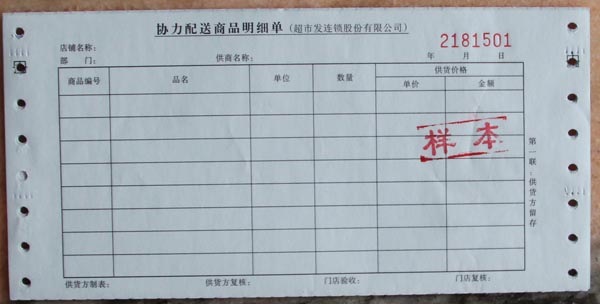 协力配送商品明细单(超市发连锁股份有限公司)
2181501
店铺名称:
部 门: 供商名称: 年 月 日
商品编号 品名 单位 数量 供货价格
单价 金额
样本
第一联:供货方留存
供货方制表: 供货方复核: 门店验收: 门店复核: